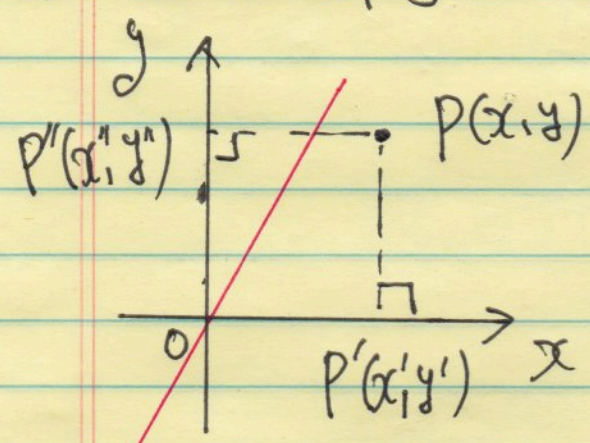 y
P(x,y)
P''(x'',y'')
O
x
P'(x',y')